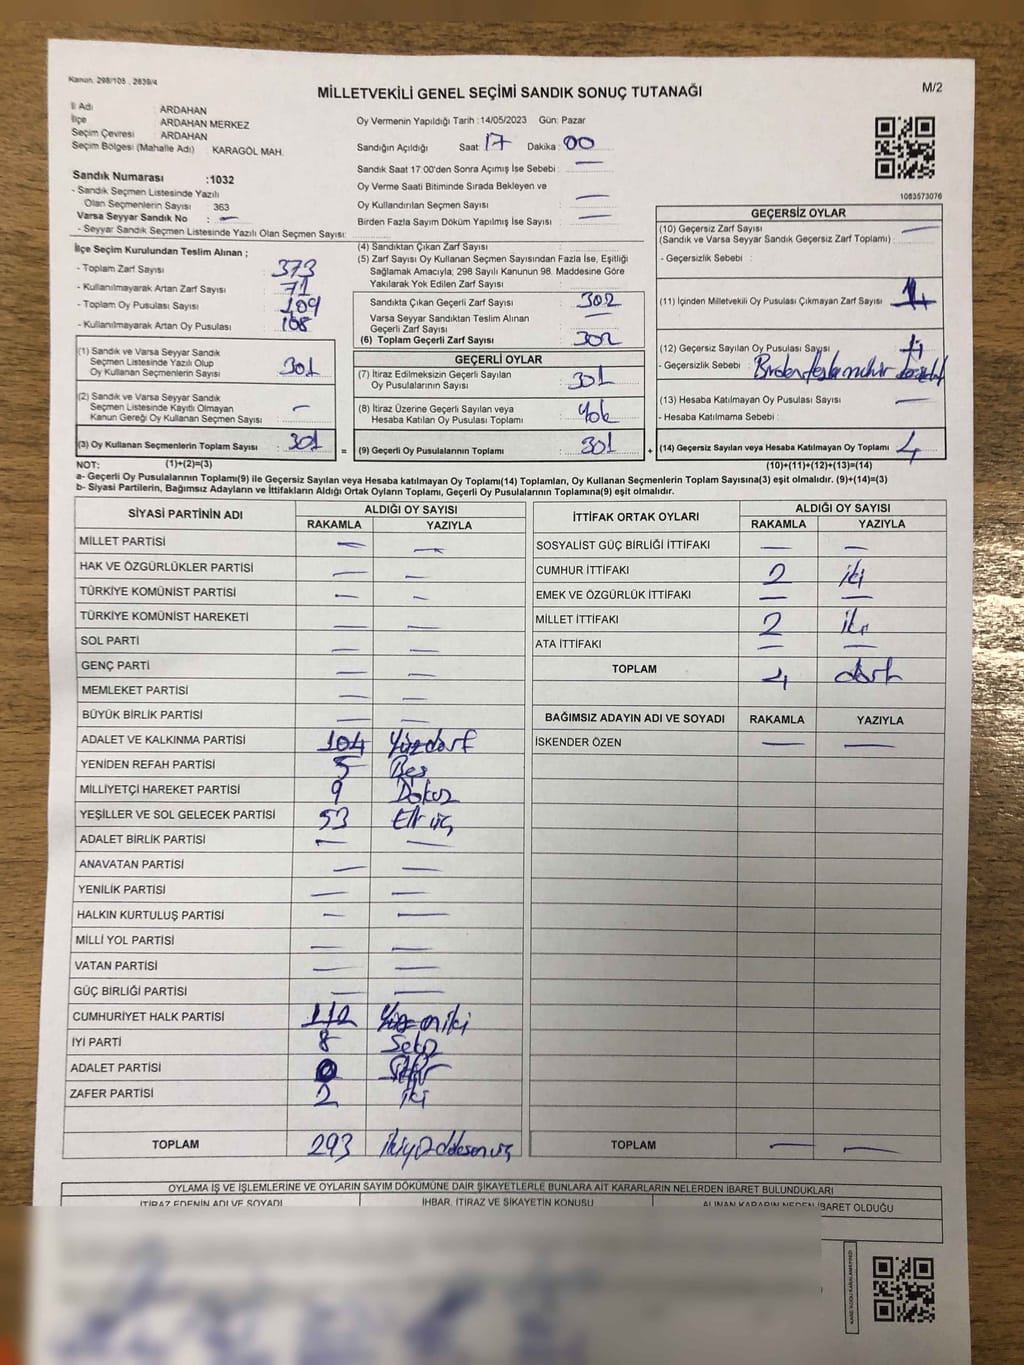 Kanun. 298/105 . 2839/4
MİLLETVEKİLİ GENEL SEÇİMİ SANDIK SONUÇ TUTANAĞI
M/2
İl Adı : ARDAHAN
İlçe : ARDAHAN MERKEZ
Seçim Çevresi : ARDAHAN
Seçim Bölgesi (Mahalle Adı) : KARAGÖL MAH.
Oy Vermenin Yapıldığı Tarih :14/05/2023 Gün: Pazar
Sandığın Açıldığı Saat: 17 Dakika : 00
Sandık Saat 17:00'den Sonra Açılmış İse Sebebi : —
Oy Verme Saati Bitiminde Sırada Bekleyen ve
Oy Kullandırılan Seçmen Sayısı : —
Birden Fazla Sayım Döküm Yapılmış İse Sayısı : —
1083573076
Sandık Numarası :1032
- Sandık Seçmen Listesinde Yazılı
Olan Seçmenlerin Sayısı : 363
Varsa Seyyar Sandık No : —
- Seyyar Sandık Seçmen Listesinde Yazılı Olan Seçmen Sayısı:
İlçe Seçim Kurulundan Teslim Alınan ;
- Toplam Zarf Sayısı : 373
- Kullanılmayarak Artan Zarf Sayısı : 71
- Toplam Oy Pusulası Sayısı : 409
- Kullanılmayarak Artan Oy Pusulası : 108
(1) Sandık ve Varsa Seyyar Sandık
Seçmen Listesinde Yazılı Olup
Oy Kullanan Seçmenlerin Sayısı : 301
(2) Sandık ve Varsa Seyyar Sandık
Seçmen Listesinde Kayıtlı Olmayan
Kanun Gereği Oy Kullanan Seçmen Sayısı : —
(3) Oy Kullanan Seçmenlerin Toplam Sayısı : 301
(4) Sandıktan Çıkan Zarf Sayısı :
(5) Zarf Sayısı Oy Kullanan Seçmen Sayısından Fazla İse, Eşitliği
Sağlamak Amacıyla; 298 Sayılı Kanunun 98. Maddesine Göre
Yakılarak Yok Edilen Zarf Sayısı :
Sandıkta Çıkan Geçerli Zarf Sayısı : 302
Varsa Seyyar Sandıktan Teslim Alınan
Geçerli Zarf Sayısı : —
(6) Toplam Geçerli Zarf Sayısı : 302
GEÇERLİ OYLAR
(7) İtiraz Edilmeksizin Geçerli Sayılan
Oy Pusulalarının Sayısı : 301
(8) İtiraz Üzerine Geçerli Sayılan veya
Hesaba Katılan Oy Pusulası Toplamı : Yok
= (9) Geçerli Oy Pusulalarının Toplamı : 301
GEÇERSİZ OYLAR
(10) Geçersiz Zarf Sayısı : —
(Sandık ve Varsa Seyyar Sandık Geçersiz Zarf Toplamı)
- Geçersizlik Sebebi :
(11) İçinden Milletvekili Oy Pusulası Çıkmayan Zarf Sayısı :
(12) Geçersiz Sayılan Oy Pusulası Sayısı :
- Geçersizlik Sebebi : Birden fazla mühür
(13) Hesaba Katılmayan Oy Pusulası Sayısı : —
- Hesaba Katılmama Sebebi :
+ (14) Geçersiz Sayılan veya Hesaba Katılmayan Oy Toplamı :
NOT: (1)+(2)=(3) (10)+(11)+(12)+(13)=(14)
a- Geçerli Oy Pusulalarının Toplamı(9) ile Geçersiz Sayılan veya Hesaba katılmayan Oy Toplamı(14) Toplamları, Oy Kullanan Seçmenlerin Toplam Sayısına(3) eşit olmalıdır. (9)+(14)=(3)
b- Siyasi Partilerin, Bağımsız Adayların ve İttifakların Aldığı Ortak Oyların Toplamı, Geçerli Oy Pusulalarının Toplamına(9) eşit olmalıdır.
SİYASİ PARTİNİN ADI ALDIĞI OY SAYISI
RAKAMLA YAZIYLA
MİLLET PARTİSİ — —
HAK VE ÖZGÜRLÜKLER PARTİSİ — —
TÜRKİYE KOMÜNİST PARTİSİ — —
TÜRKİYE KOMÜNİST HAREKETİ — —
SOL PARTİ — —
GENÇ PARTİ — —
MEMLEKET PARTİSİ — —
BÜYÜK BİRLİK PARTİSİ — —
ADALET VE KALKINMA PARTİSİ 104 Yüzdört
YENİDEN REFAH PARTİSİ 5 Beş
MİLLİYETÇİ HAREKET PARTİSİ 9 Dokuz
YEŞİLLER VE SOL GELECEK PARTİSİ 53 Elli üç
ADALET BİRLİK PARTİSİ — —
ANAVATAN PARTİSİ — —
YENİLİK PARTİSİ — —
HALKIN KURTULUŞ PARTİSİ — —
MİLLİ YOL PARTİSİ — —
VATAN PARTİSİ — —
GÜÇ BİRLİĞİ PARTİSİ — —
CUMHURİYET HALK PARTİSİ 112 Yüz oniki
İYİ PARTİ 8 Sekiz
ADALET PARTİSİ 0 Sıfır
ZAFER PARTİSİ 2 iki
TOPLAM 293 ikiyüzdoksanüç
İTTİFAK ORTAK OYLARI ALDIĞI OY SAYISI
RAKAMLA YAZIYLA
SOSYALİST GÜÇ BİRLİĞİ İTTİFAKI — —
CUMHUR İTTİFAKI 2 iki
EMEK VE ÖZGÜRLÜK İTTİFAKI — —
MİLLET İTTİFAKI 2 iki
ATA İTTİFAKI — —
TOPLAM 4 dört
BAĞIMSIZ ADAYIN ADI VE SOYADI RAKAMLA YAZIYLA
İSKENDER ÖZEN — —
TOPLAM — —
OYLAMA İŞ VE İŞLEMLERİNE VE OYLARIN SAYIM DÖKÜMÜNE DAİR ŞİKAYETLERLE BUNLARA AİT KARARLARIN NELERDEN İBARET BULUNDUKLARI
İTİRAZ EDENİN ADI VE SOYADI İHBAR, İTİRAZ VE ŞİKAYETİN KONUSU ALINAN KARARIN NEDEN İBARET OLDUĞU